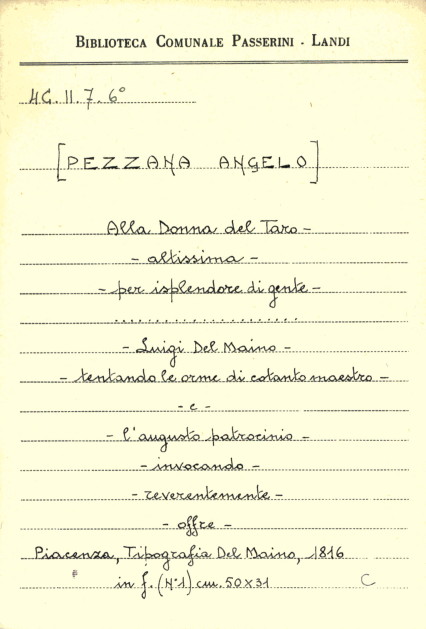 BIBLIOTECA COMUNALE PASSERINI - LANDI
4C.II.7.6°
[PEZZANA ANGELO]
Alla Donna del Taro -
- altissima -
- per isplendore di gente -
.....................
- Luigi Del Maino -
- tentando le orme di cotanto maestro -
- e -
- l'augusto patrocinio -
- invocando -
- reverentemente -
- offre -
Piacenza, Tipografia Del Maino, 1816
in f. (N°1) cm. 50x31 C